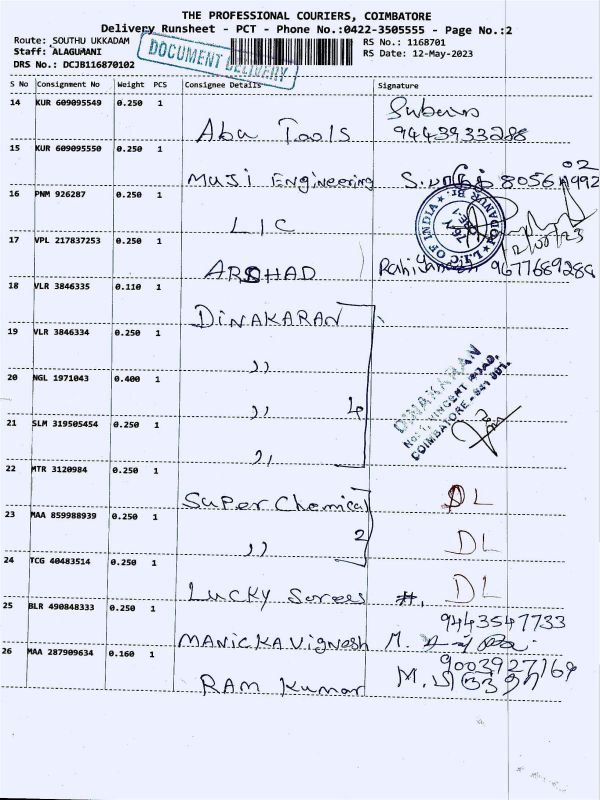 THE PROFESSIONAL COURIERS, COIMBATORE
Delivery Runsheet - PCT - Phone No.:0422-3505555 - Page No.:2
Route: SOUTHU UKKADAM
Staff: ALAGUMANI
DRS No.: DCJB116870102
DOCUMENT DELIVERY
RS No.: 1168701
RS Date: 12-May-2023
S No Consignment No Weight PCS Consignee Details Signature
14 KUR 609095549 0.250 1
Aba Tools 9443933288
15 KUR 609095550 0.250 1
Muji Engineering
16 PNM 926287 0.250 1
LIC
L.I.C OF INDIA
12/05/23
17 VPL 217837253 0.250 1
ARSHAD 9677689288
18 VLR 3846335 0.110 1
DINAKARAN
19 VLR 3846334 0.250 1
,,
20 NGL 1971043 0.400 1
,, 4
DINAKARAN
VINCENT ROAD,
COIMBATORE - 641 001.
21 SLM 319505454 0.250 1
,,
22 MTR 3120984 0.250 1
Super Chemical DL
23 MAA 859988939 0.250 1
,, 2 DL
24 TCG 40483514 0.250 1
Lucky Sarees #, DL
25 BLR 490848333 0.250 1
9443547733
MANICKAVignesh M.
26 MAA 287909634 0.160 1
9003927169
RAM Kumar M.